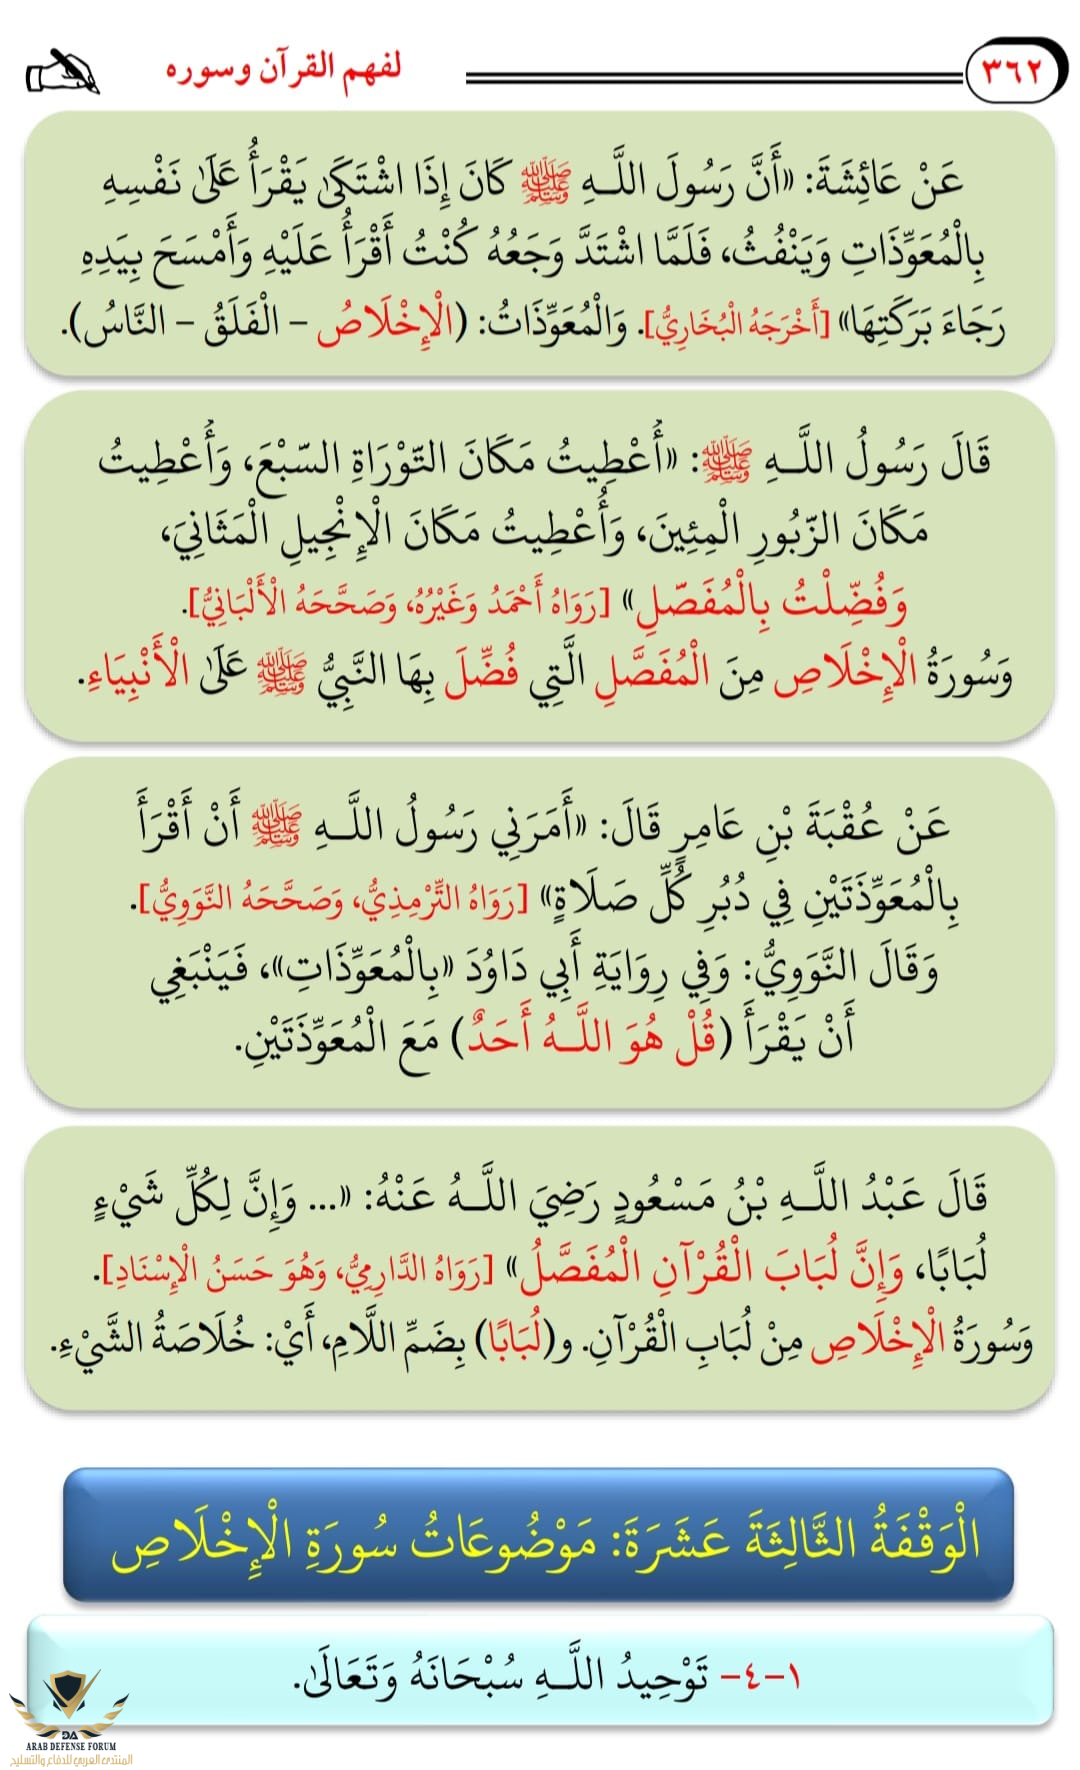 ٣٦٢
لفهم القرآن وسوره
عَنْ عَائِشَةَ: «أَنَّ رَسُولَ اللَّـهِ ﷺ كَانَ إِذَا اشْتَكَىٰ يَقْرَأُ عَلَىٰ نَفْسِهِ
بِالْمُعَوِّذَاتِ وَيَنْفُثُ، فَلَمَّا اشْتَدَّ وَجَعُهُ كُنْتُ أَقْرَأُ عَلَيْهِ وَأَمْسَحَ بِيَدِهِ
رَجَاءَ بَرَكَتِهَا» [أَخْرَجَهُ الْبُخَارِيُّ]. وَالْمُعَوِّذَاتُ: (الْإِخْلَاصُ – الْفَلَقُ – النَّاسُ).
قَالَ رَسُولُ اللَّـهِ ﷺ: «أُعْطِيتُ مَكَانَ التّوْرَاةِ السّبْعَ، وَأُعْطِيتُ
مَكَانَ الزّبُورِ الْمِئِينَ، وَأُعْطِيتُ مَكَانَ الْإِنْجِيلِ الْمَثَانِيَ،
وَفُضِّلْتُ بِالْمُفَصّلِ» [رَوَاهُ أَحْمَدُ وَغَيْرُهُ، وَصَحَّحَهُ الْأَلْبَانِيُّ].
وَسُورَةُ الْإِخْلَاصِ مِنَ الْمُفَصَّلِ الَّتِي فُضِّلَ بِهَا النَّبِيُّ ﷺ عَلَىٰ الْأَنْبِيَاءِ.
عَنْ عُقْبَةَ بْنِ عَامِرٍ قَالَ: «أَمَرَنِي رَسُولُ اللَّـهِ ﷺ أَنْ أَقْرَأَ
بِالْمُعَوِّذَتَيْنِ فِي دُبُرِ كُلِّ صَلَاةٍ» [رَوَاهُ التِّرْمِذِيُّ، وَصَحَّحَهُ النَّوَوِيُّ].
وَقَالَ النَّوَوِيُّ: وَفِي رِوَايَةِ أَبِي دَاوُدَ «بِالْمُعَوِّذَاتِ»، فَيَنْبَغِي
أَنْ يَقْرَأَ (قُلْ هُوَ اللَّـهُ أَحَدٌ) مَعَ الْمُعَوِّذَتَيْنِ.
قَالَ عَبْدُ اللَّـهِ بْنُ مَسْعُودٍ رَضِيَ اللَّـهُ عَنْهُ: «... وَإِنَّ لِكُلِّ شَيْءٍ
لُبَابًا، وَإِنَّ لُبَابَ الْقُرْآنِ الْمُفَصَّلُ» [رَوَاهُ الدَّارِمِيُّ، وَهُوَ حَسَنُ الْإِسْنَادِ].
وَسُورَةُ الْإِخْلَاصِ مِنْ لُبَابِ الْقُرْآنِ. و(لُبَابًا) بِضَمِّ اللَّامِ، أَيْ: خُلَاصَةُ الشَّيْءِ.
الْوَقْفَةُ الثَّالِثَةَ عَشَرَةَ: مَوْضُوعَاتُ سُورَةِ الْإِخْلَاصِ
١-٤- تَوْحِيدُ اللَّـهِ سُبْحَانَهُ وَتَعَالَىٰ.
DA
ARAB DEFENSE FORUM
المنتدى العربي للدفاع والتسليح